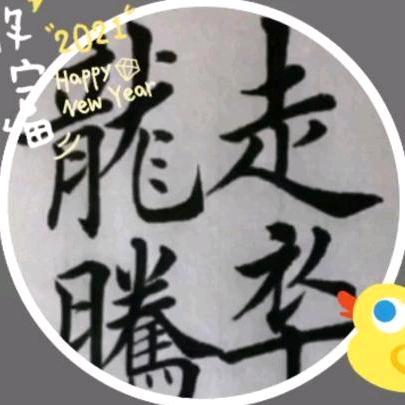 "2021"
Happy
New Year
走卒
龍騰